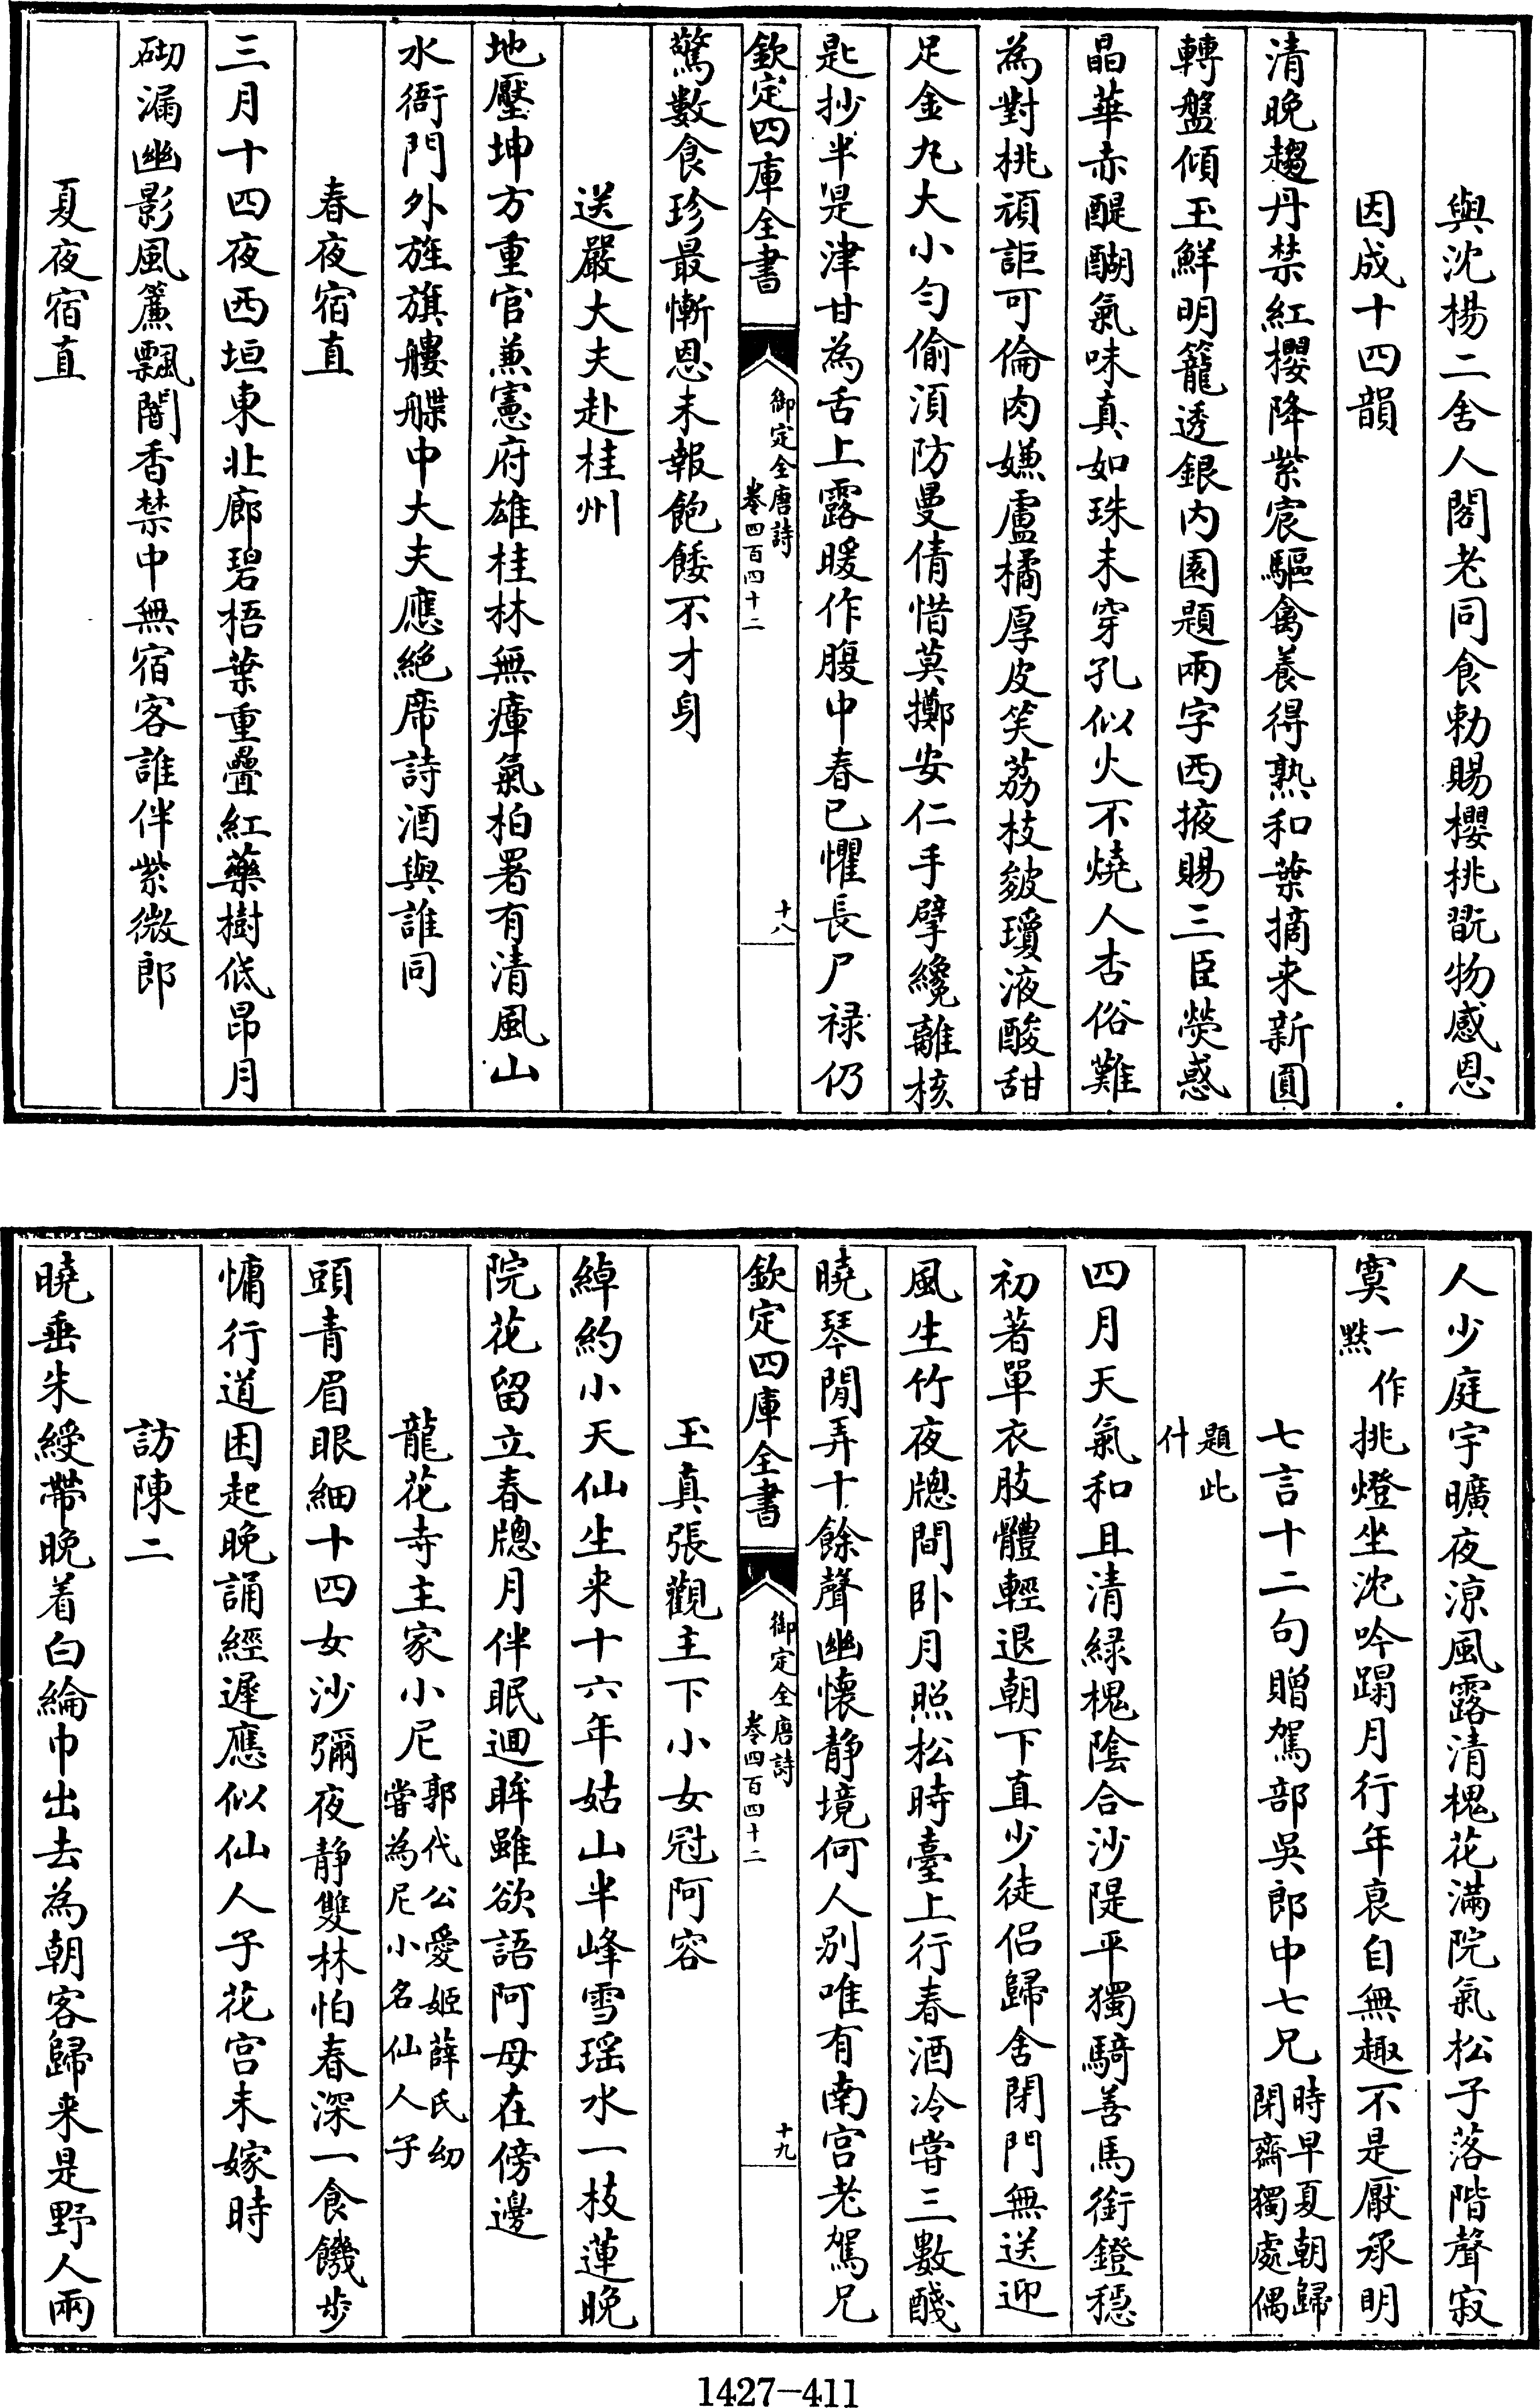 與沈楊二舍人閣老同食勅賜櫻桃翫物感恩
因成十四韻
清晚趨丹禁紅櫻降紫宸驅禽養得熟和葉摘来新圓
轉盤傾玉鮮明籠透銀内園題兩字西掖賜三臣熒惑
晶華赤醍醐氣味真如珠未穿孔似火不燒人杏俗難
為對桃頑詎可倫肉嫌盧橘厚皮笑荔枝皴瓊液酸甜
足金丸大小勻偷湏防曼倩惜莫擲安仁手擘纔離核
匙抄半是津甘為舌上露暖作腹中春已懼長尸禄仍
欽定四庫全書
御定全唐詩
卷四百四十二
十八
驚數食珍最慚恩未報飽餧不才身
送嚴大夫赴桂州
地壓坤方重官兼憲府雄桂林無瘴氣柏署有清風山
水衙門外旌旗艛艓中大夫應絶席詩酒與誰同
春夜宿直
三月十四夜西垣東北廊碧梧葉重疊紅藥樹低昂月
砌漏幽影風簾飄闇香禁中無宿客誰伴紫微郎
夏夜宿直
人少庭宇曠夜凉風露清槐花滿院氣松子落階聲寂
寞一作默挑燈坐沈吟蹋月行年衰自無趣不是厭承明
七言十二句贈駕部吳郎中七兄時早夏朝歸閉齋獨處偶
題此什
四月天氣和且清緑槐陰合沙隄平獨騎善馬銜鐙穏
初著單衣肢體輕退朝下直少徒侣歸舍閉門無送迎
風生竹夜牎間卧月照松時臺上行春酒冷嘗三數醆
曉琴閒弄十餘聲幽懐静境何人别唯有南宫老駕兄
欽定四庫全書
御定全唐詩
卷四百四十二
十九
玉真張觀主下小女冠阿容
綽約小天仙生来十六年姑山半峰雪瑶水一枝蓮晚
院花留立春牎月伴眠迴眸雖欲語阿母在傍邊
龍花寺主家小尼郭代公愛姬薛氏幼嘗為尼小名仙人子
頭青眉眼細十四女沙彌夜静雙林怕春深一食饑步
慵行道困起晚誦經遲應似仙人子花宫未嫁時
訪陳二
曉垂朱綬帶晚着白綸巾出去為朝客歸来是野人兩
1427-411